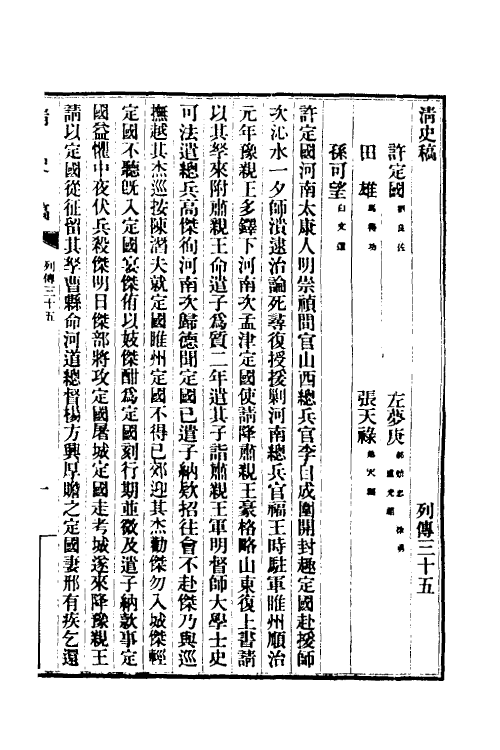 清史稿
列傳三十五
許定國 劉良佐
左夢庚 郝效忠 盧光祖 徐勇
田雄 馬得功
張天祿 弟天福
孫可望 白文選
許定國河南太康人明崇禎間官山西總兵官李自成圍開封趣定國赴援師
次沁水一夕師潰逮治論死尋復授援剿河南總兵官福王時駐軍睢州順治
元年豫親王多鐸下河南次孟津定國使請降肅親王豪格略山東復上書請
以其孥來附肅親王命遣子爲質二年遣其子詣肅親王軍明督師大學士史
可法遣總兵高傑徇河南次歸德聞定國已遣子納欵招往會不赴傑乃與巡
撫越其杰巡按陳潛夫就定國睢州定國不得已郊迎其杰勸傑勿入城傑輕
定國不聽旣入定國宴傑侑以妓傑酣爲定國刻行期並微及遣子納欵事定
國益懼中夜伏兵殺傑明日傑部將攻定國屠城定國走考城遂來降豫親王
請以定國從征留其孥曹縣命河道總督楊方興厚贍之定國妻邢有疾乞還
清史稿 列傳三十五 一